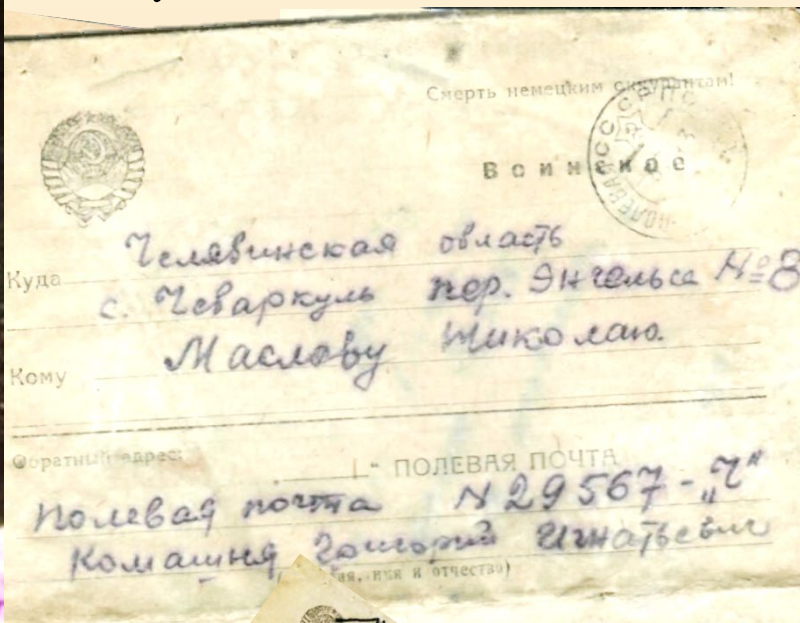 Смерть немецким оккупантам!
СССР
Воинское
Куда Челябинская область
с. Чебаркуль пер. Энгельса №8
Кому Маслову Николаю.
Обратный адрес:
ПОЛЕВАЯ ПОЧТА
Полевая почта N 29567-„Ч“
Комашня Григорий Игнатьевич
имя и отчество)